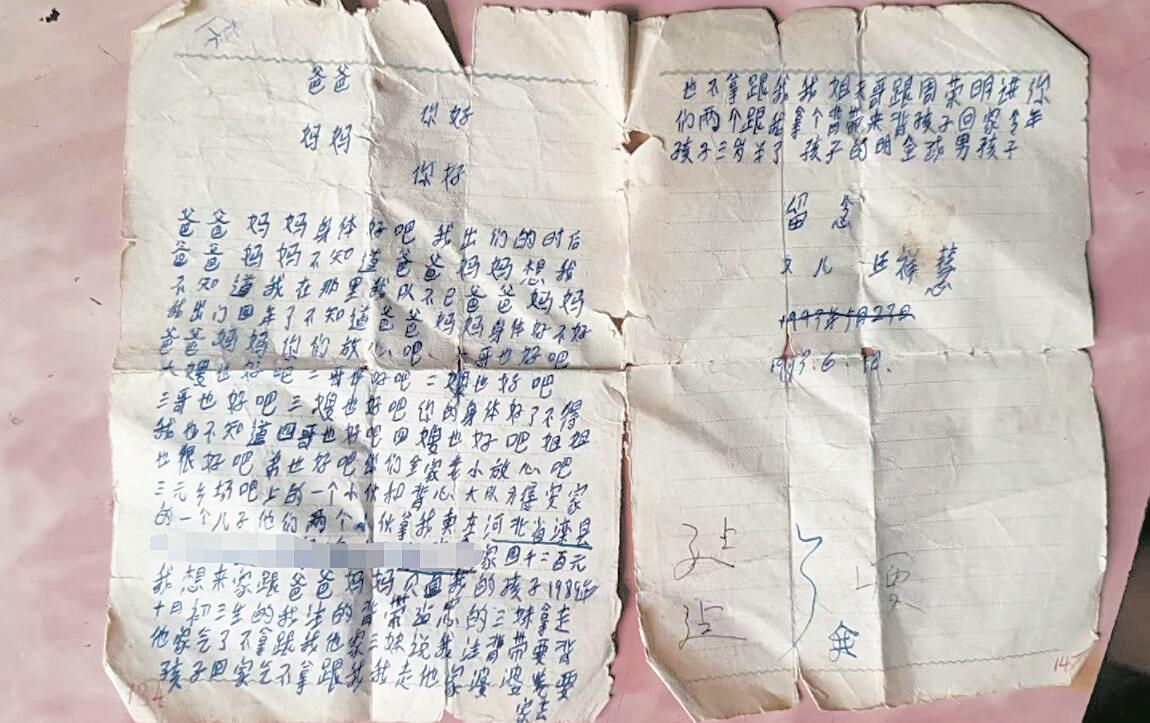 爸爸
你好
妈妈
你好
爸爸妈妈身体好吧我出们的时后
爸爸妈妈不知道爸爸妈妈想我
不知道我在那里我以不已爸爸妈妈
我出门四年了不知道爸爸妈妈身体好不好
爸爸妈妈你们放心吧大哥也好吧
大嫂也好吧二哥也好吧二嫂也好吧
三哥也好吧三嫂也好吧你的身体好了不得
我也不知道四哥也好吧四嫂也好吧姐姐
也很好吧弟也好吧你们全家老小放心吧
三元乡场吧上的一个小伙和背心大队方安家
的一个儿子他们两个小伙拿我卖在河北省滦县
家四千二百元
我想来家跟爸爸妈妈我的孩子1989年
十月初三生的我注的背带的三妹拿走
他家乞了不拿跟我他家三妹说我注背带要背
孩子回家乞不拿跟我我走他家婆婆要
家去
也不拿跟我我姐夫哥跟周荣明讲你
们两个跟我拿个背带来背孩子回家今年
孩子三岁半了孩子的明全球男孩子
留念
女儿 祥慧
1993.6.12.
金
要
184
147